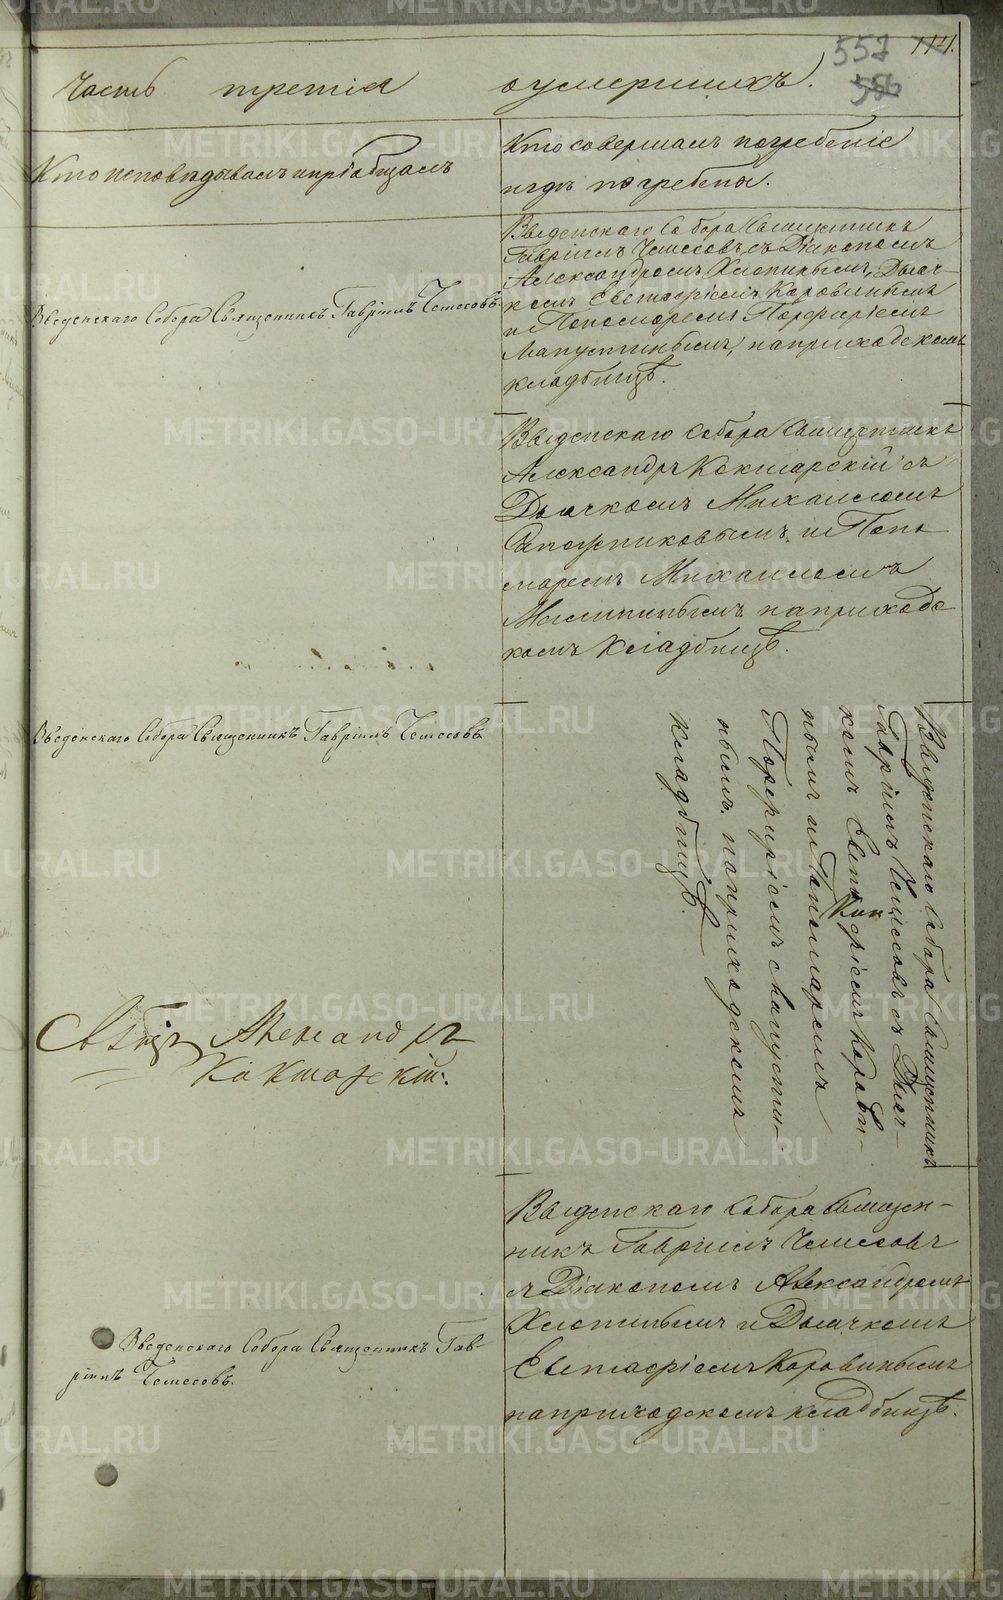 557 114.
556
Часть третія оумершихъ.
Кто исповѣдывалъ и пріобщалъ
Кто совершалъ погребеніе
и гдѣ погребены.
Введенскаго Собора Священникъ Гавріилъ Чемесовъ.
Введенскаго Собора Священникъ
Гавріилъ Чемесовъ съ Діакономъ
Александромъ Хлопинымъ, Дьяч-
комъ Евстафіемъ Коровинымъ
и Пономоремъ Порфиріемъ
Мапустинымъ, на приходскомъ
кладбищѣ.
Введенскаго Собора Священникъ
Александръ Кокшарскій съ
Дьячкомъ Михаиломъ
Сапожниковымъ и Поно
маремъ Михаиломъ
на приходс
комъ кладбищѣ.
Введенскаго Собора Священникъ Гавріилъ Чемесовъ
Введенскаго Собора Священникъ
Гавріилъ Чемесовъ съ Дьяч-
комъ Евстафіемъ Корови-
нымъ и Пономаремъ
Порфиріемъ
нымъ на приходскомъ
кладбищѣ.
Александръ
Кокшарскій.
Введенскаго Собора Священ-
никъ Гавріилъ Чемесовъ
съ Діакономъ Александромъ
Хлопинымъ и Дьячкомъ
Евстафіемъ Коровинымъ
на приходскомъ кладбищѣ.
Введенскаго Собора Священникъ Гав-
ріилъ Чемесовъ.
METRIKI.GASO-URAL.RU